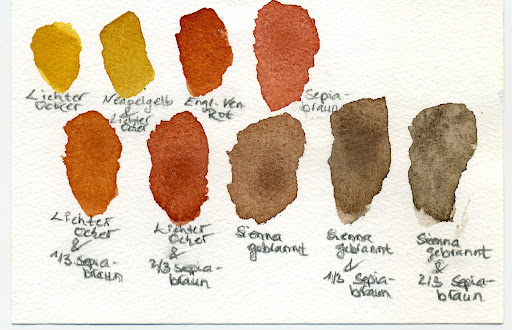 Lichter
Ocker
Neapelgelb
&
Lichter
Ocker
Engl. Ven.
Rot
Sepia-
braun
Lichter
Ocker
&
1/3 Sepia-
braun
Lichter
Ocker
&
2/3 Sepia-
braun
Sienna
gebrannt
Sienna
gebrannt
&
1/3 Sepia-
braun
Sienna
gebrannt
&
2/3 Sepia-
braun